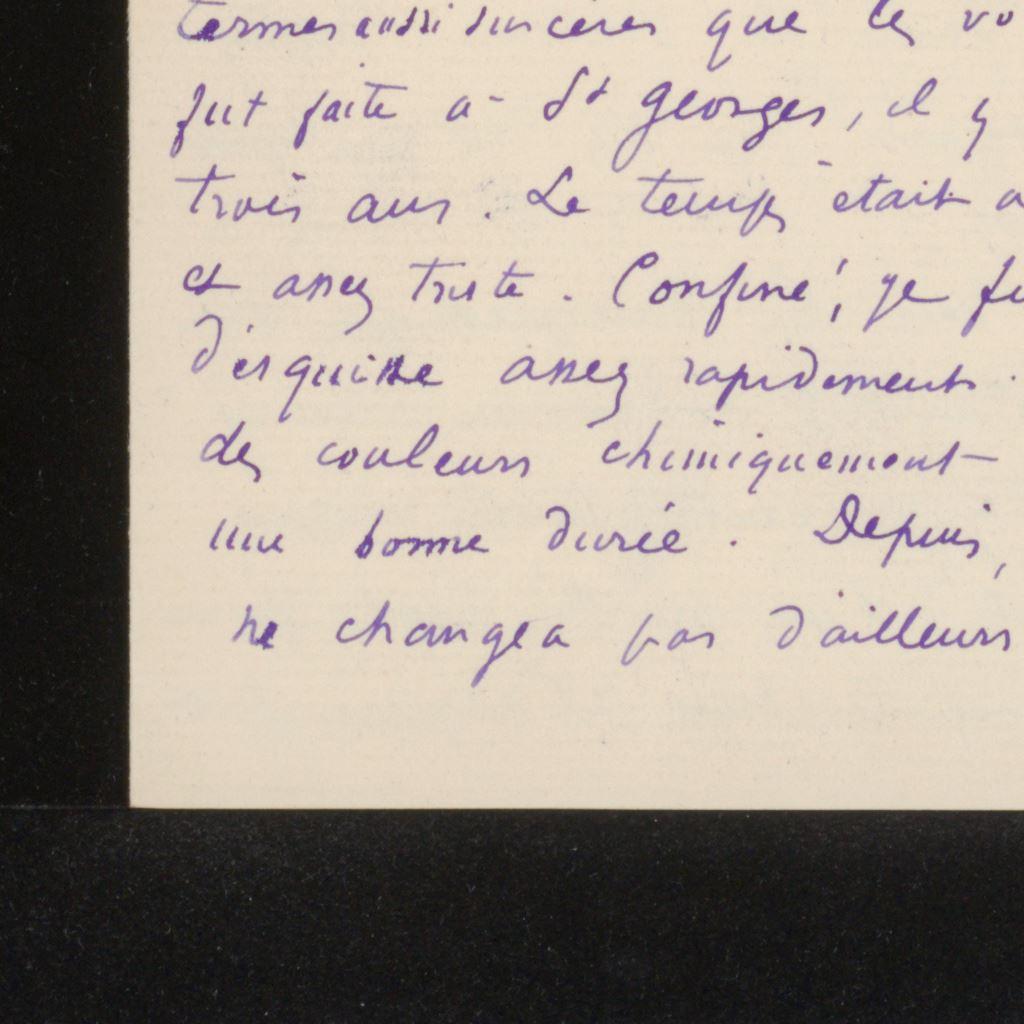 termes aussi sincères que les vo
fut faite à St Georges, il y
trois ans. Le temps était a
et assez triste. Confiné, je fi
d'esquisse assez rapidement.
des couleurs chimiquement
une bonne durée. Depuis,
ne changea pas d'ailleurs